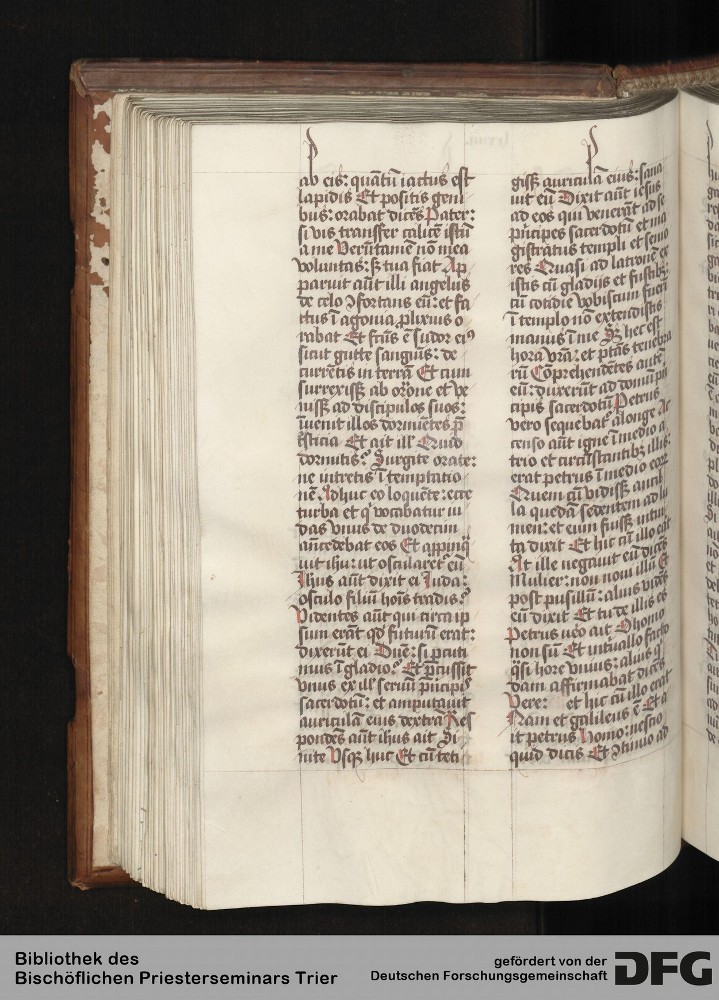 ab eis: quātū iactus est
lapidis Et positis geni
bus: orabat dicēs Pater:
si vis transfer calicē istū
a me Verūtamē nō mea
voluntas: sꝫ tua fiat Ap
paruit aūt illi angelus
de celo ꝯfortans eū: et fa
ctus ī agonia ꝓlixius o
rabat Et fcūs ē sudor eiꝰ
sicut gutte sanguīs: de
currētis in terrā Et cum
surrexissꝫ ab orōne et ve
nissꝫ ad discipulos suos:
īuenit illos dormiētes p̄
tristicia Et ait illˀ Quid
dormitis? Surgite orate:
ne intretis ī temptatio
nē Adhuc eo loquēte: ecce
turba et qͥ vocabatur iu
das vnus de duodecim
aūcedebat eos Et apꝓinqͣ
uit ihū: ut oscularetˀ eū
Ihus aūt dixit ei Iuda:
osculo filiū hoīs tradis?
Videntes aūt qui circa ip
sum erāt qd̄ futurū erat:
dixerūt ei Dn̄e: si ꝑcuti
mus ī gladio? Et ꝑcussit
vnus ex illˀ seruū pͥncipis
sacerdotū: et amputauit
auriculā eius dextrā Res
pondēs aūt ihus ait Si
nite Vsqꝫ huc Et cū teti
gissꝫ auriculā eius: sana
uit eū Dixit aūt iesus
ad eos qui venerāt ad se
pͥncipes sacerdotū et ma
gistratus templi et senio
res Quasi ad latronē ex
istis cū gladijs et fustibꝫ:
cū cotidie vobiscum fueri
ī templo nō extendistis
manus ī me Sꝫ hec est
hora vr̄a: et ptās tenebra
rū Cōprehendētes autē
eū: duxerūt ad domū pͥn
cipis sacerdotū Petrus
vero sequebatˀ a longe Ac
censo aūt igne ī medio a
trio et circūstantibꝫ illis:
erat petrus ī medio eoꝝ
Quem cū vidissꝫ ancil
la quedā sedentem ad lu
men: et eum fuissꝫ intui
ta dixit Et hic cū illo erat
At ille negauit eū dicēs
Mulier: non noui illū Et
post pusillū: alius vidēs
eū dixit Et tu de illis es
Petrus ṽo ait O homo
non sū Et intͣuallo facto
qͣsi hore vnius: alius qͥ
dam affirmabat dicēs
Vere: et hic cū illo erat
Nam et galileus ē Et a
it petrus Homo: nescio
quid dicis Et ꝯtinuo ad
Bibliothek des
Bischöflichen Priesterseminars Trier
gefördert von der
Deutschen Forschungsgemeinschaft
DFG